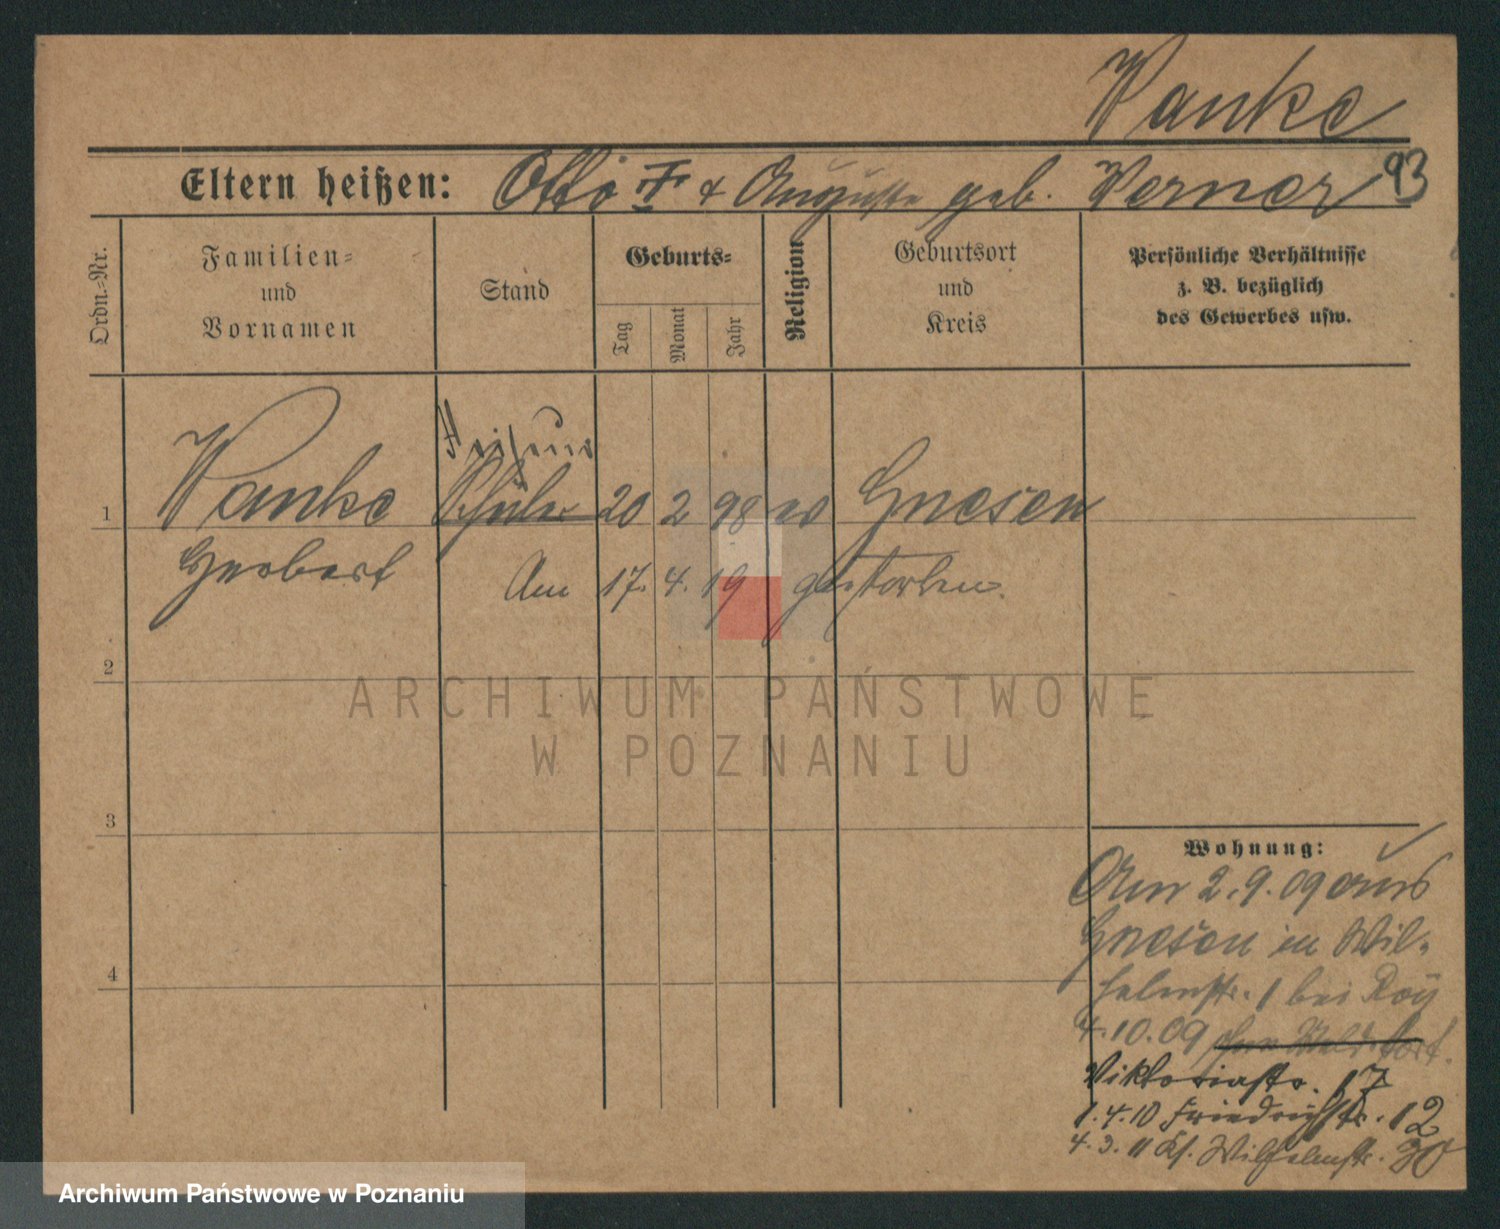 Wanke
Eltern heißen: Otto † & Auguste geb. Werner 93
Ordn.-Nr.
Familien-
und
Vornamen
Stand
Geburts-
Tag
Monat
Jahr
Religion
Geburtsort
und
Kreis
Persönliche Verhältnisse
z. B. bezüglich
des Gewerbes usw.
Friseur
1 Wanke Schüler 20 2 98 ev Gnesen
Herbert Am 17. 4. 19 gestorben.
2
ARCHIWUM PAŃSTWOWE
W POZNANIU
3
4
Wohnung:
Am 2.9.09 aus
Gnesen in Wil-
helmstr. 1 bei
4.10.09
Viktoriastr. 17
1.4.10 Friedrichstr. 12
4.3.11 Wilhelmstr. 30
Archiwum Państwowe w Poznaniu